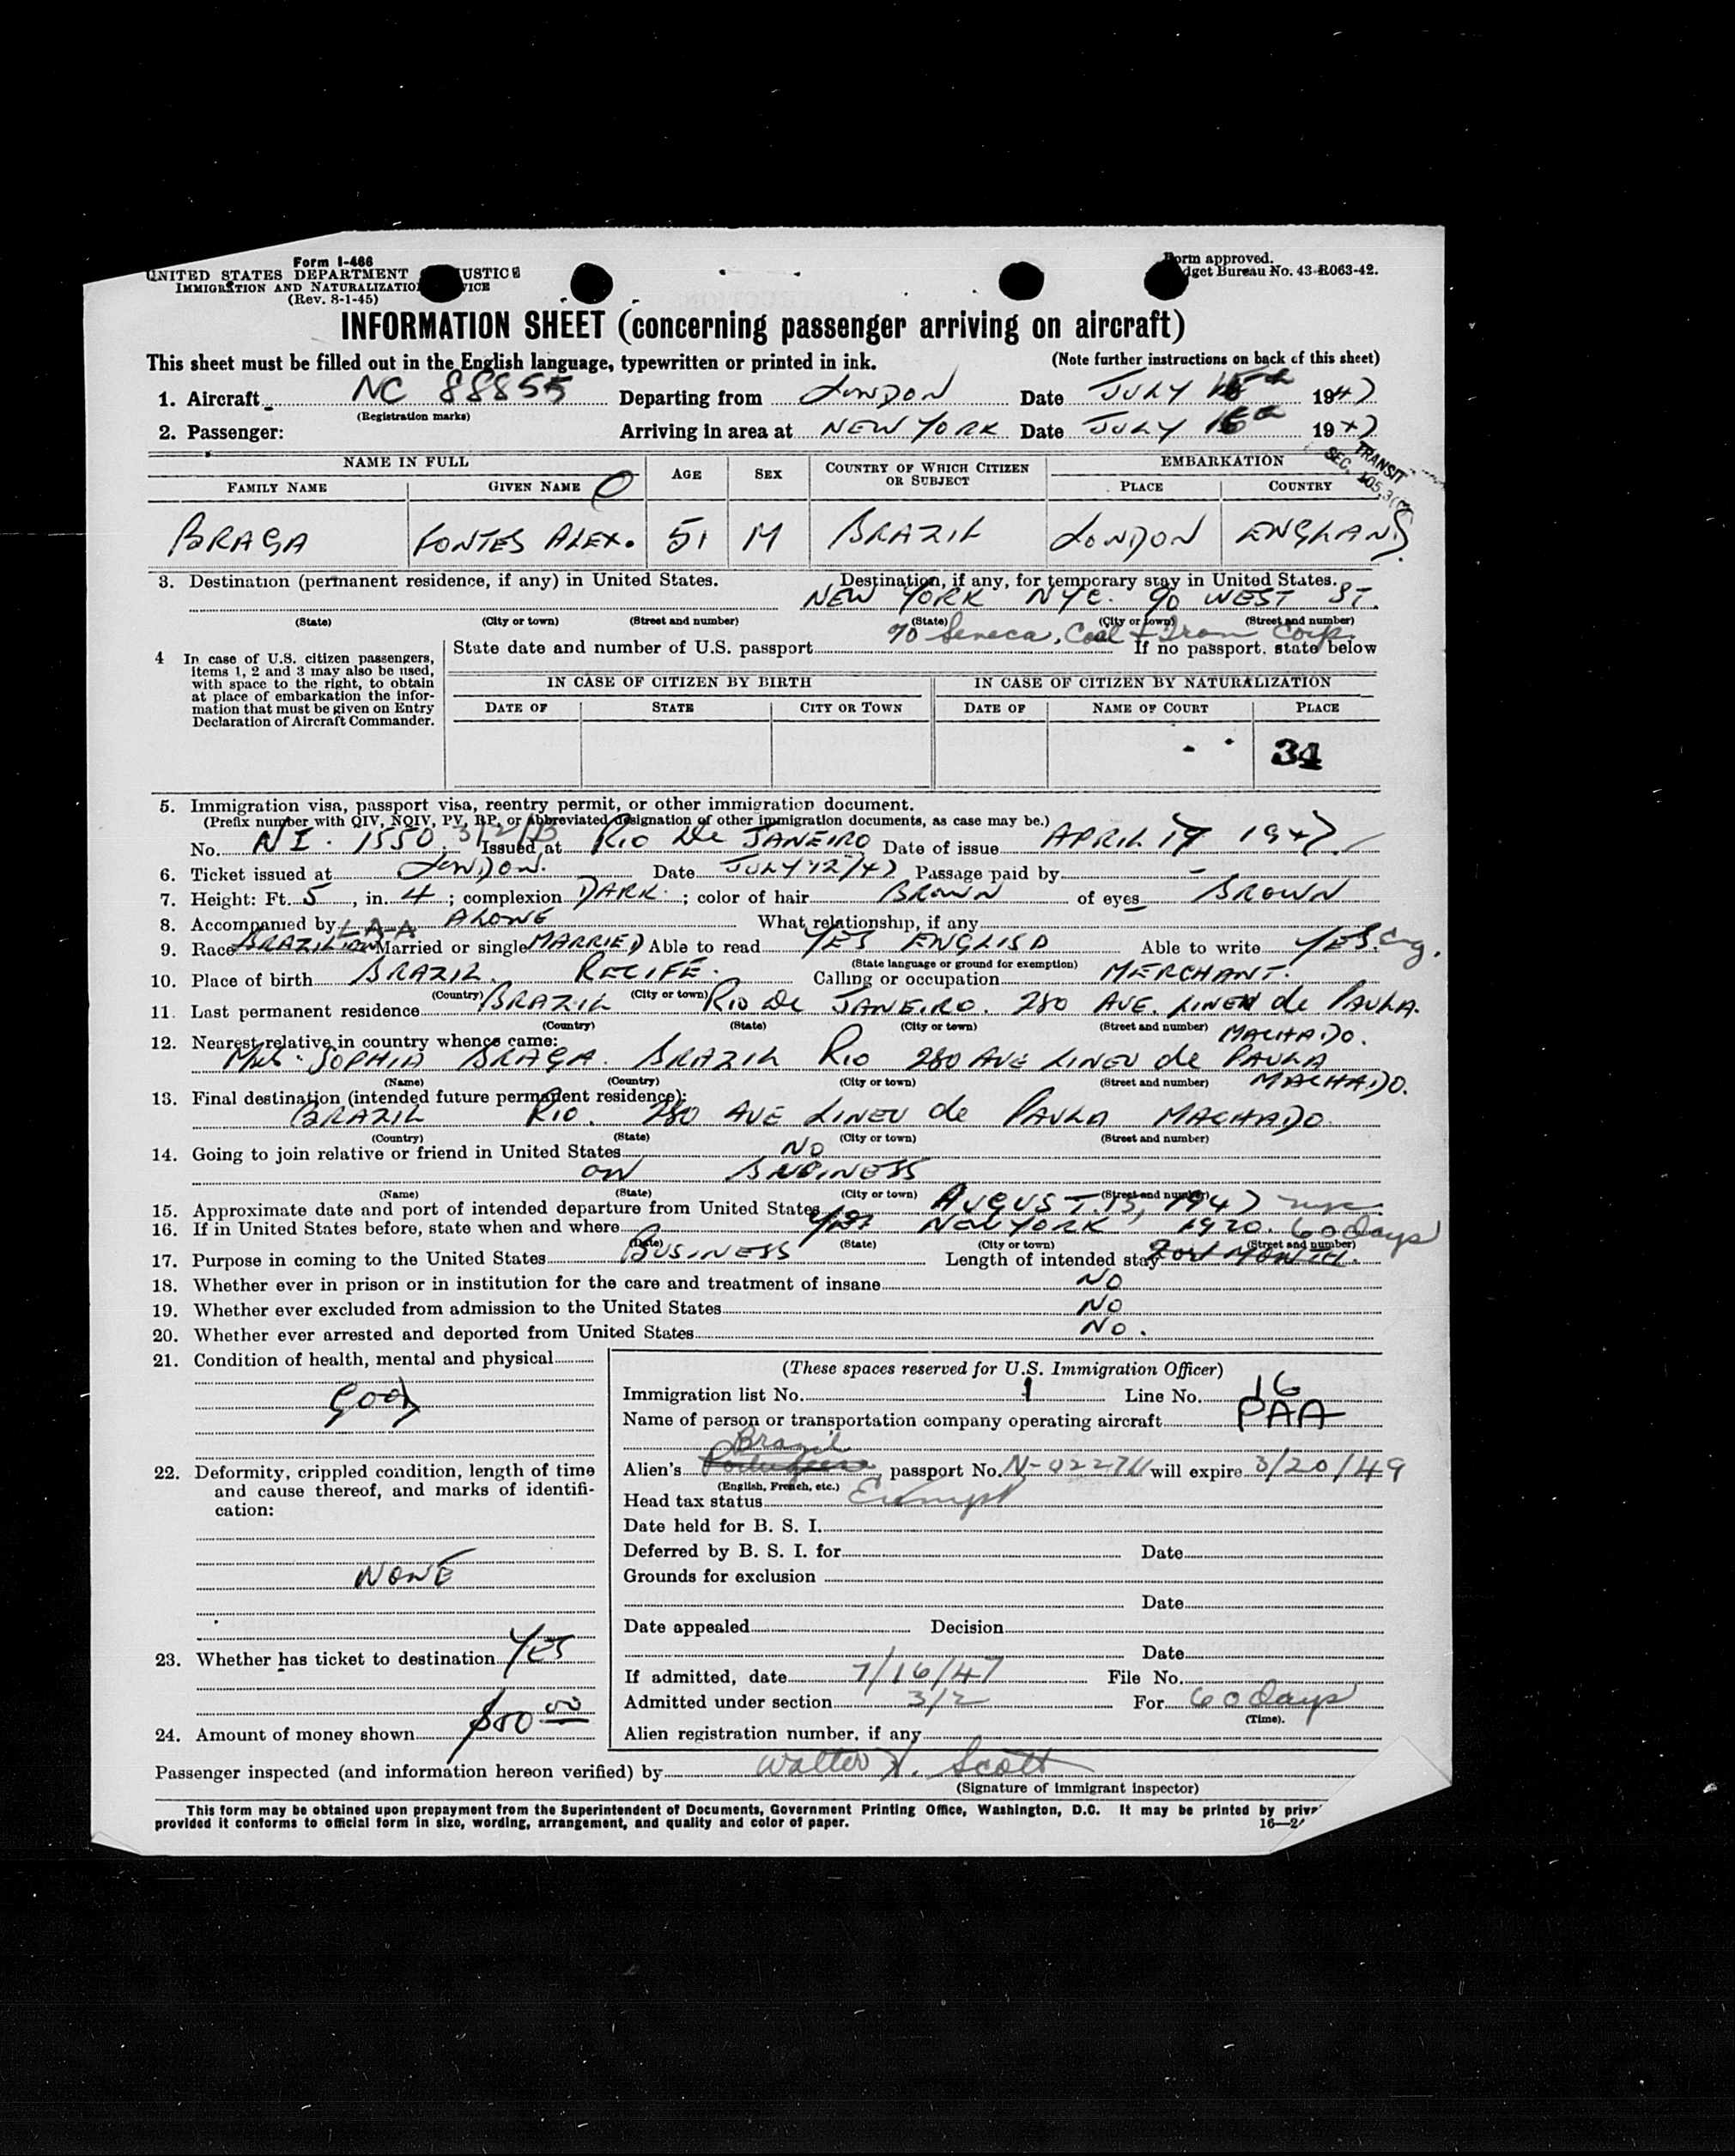 Form I-466
UNITED STATES DEPARTMENT USTICE
IMMIGRATION AND NATURALIZATIO VICE
(Rev. 8-1-45)
Form approved.
dget Bureau No. 43-R063-42.
INFORMATION SHEET (concerning passenger arriving on aircraft)
This sheet must be filled out in the English language, typewritten or printed in ink. (Note further instructions on back of this sheet)
1. Aircraft NC 88855 Departing from LONDON Date JULY 15th 1947
(Registration marks)
2. Passenger: Arriving in area at NEW YORK Date JULY 16th 1947
TRANSIT
SEC. 105.3
NAME IN FULL AGE SEX COUNTRY OF WHICH CITIZEN OR SUBJECT EMBARKATION
FAMILY NAME GIVEN NAME PLACE COUNTRY
BRAGA FONTES ALEX. 51 M BRAZIL LONDON ENGLAND
3. Destination (permanent residence, if any) in United States. Destination, if any, for temporary stay in United States.
NEW YORK NYC. 90 WEST ST.
(State) (City or town) (Street and number) (State) (City or town) (Street and number)
% Seneca, Coal + Iron Corp.
4 In case of U.S. citizen passengers, items 1, 2 and 3 may also be used, with space to the right, to obtain at place of embarkation the information that must be given on Entry Declaration of Aircraft Commander.
State date and number of U.S. passport If no passport, state below
IN CASE OF CITIZEN BY BIRTH IN CASE OF CITIZEN BY NATURALIZATION
DATE OF STATE CITY OR TOWN DATE OF NAME OF COURT PLACE
34
5. Immigration visa, passport visa, reentry permit, or other immigration document.
(Prefix number with QIV, NQIV, PV, RP, or abbreviated designation of other immigration documents, as case may be.)
No. NI. 1550 3/2/B Issued at RIO De JANEIRO Date of issue APRIL 17 1947
6. Ticket issued at LONDON. Date JULY 12/47 Passage paid by -
7. Height: Ft. 5, in. 4; complexion DARK; color of hair BROWN of eyes BROWN
8. Accompanied by ALONE What relationship, if any
9. Race BRAZILIAN Married or single MARRIED Able to read YES ENGLISH Able to write YES. Eng.
(State language or ground for exemption)
10. Place of birth BRAZIL. RECIFE. Calling or occupation MERCHANT.
(Country) (City or town)
11. Last permanent residence BRAZIL RIO De JANEIRO. 280 AVE. LINEU de PAULA. MACHADO.
(Country) (State) (City or town) (Street and number)
12. Nearest relative in country whence came:
Mrs. SOPHIA BRAGA. BRAZIL RIO 280 AVE LINEU de PAULA MACHADO.
(Name) (Country) (City or town) (Street and number)
13. Final destination (intended future permanent residence):
BRAZIL RIO. 280 AVE LINEU de PAULA MACHADO.
(Country) (State) (City or town) (Street and number)
14. Going to join relative or friend in United States NO
ON BUSINESS
(Name) (State) (City or town) (Street and number)
15. Approximate date and port of intended departure from United States AUGUST. 15, 1947 nyc
16. If in United States before, state when and where YES NEW YORK 1920. 60 days
(Date) (State) (City or town) (Street and number)
17. Purpose in coming to the United States BUSINESS Length of intended stay
18. Whether ever in prison or in institution for the care and treatment of insane NO
19. Whether ever excluded from admission to the United States NO
20. Whether ever arrested and deported from United States NO.
21. Condition of health, mental and physical
GOOD
22. Deformity, crippled condition, length of time and cause thereof, and marks of identification:
NONE
23. Whether has ticket to destination YES
24. Amount of money shown
(These spaces reserved for U.S. Immigration Officer)
Immigration list No. 1 Line No. 16
Name of person or transportation company operating aircraft PAA
Brazil
Alien's Portuguese, passport No. N-02271 will expire 3/20/49
(English, French, etc.)
Head tax status Exempt
Date held for B. S. I.
Deferred by B. S. I. for Date
Grounds for exclusion
Date
Date appealed Decision
Date
If admitted, date 7/16/47 File No.
Admitted under section 3/2 For 60 days
(Time).
Alien registration number, if any
Passenger inspected (and information hereon verified) by Walter Scott
(Signature of immigrant inspector)
This form may be obtained upon prepayment from the Superintendent of Documents, Government Printing Office, Washington, D.C. It may be printed by priva
provided it conforms to official form in size, wording, arrangement, and quality and color of paper. 16—2